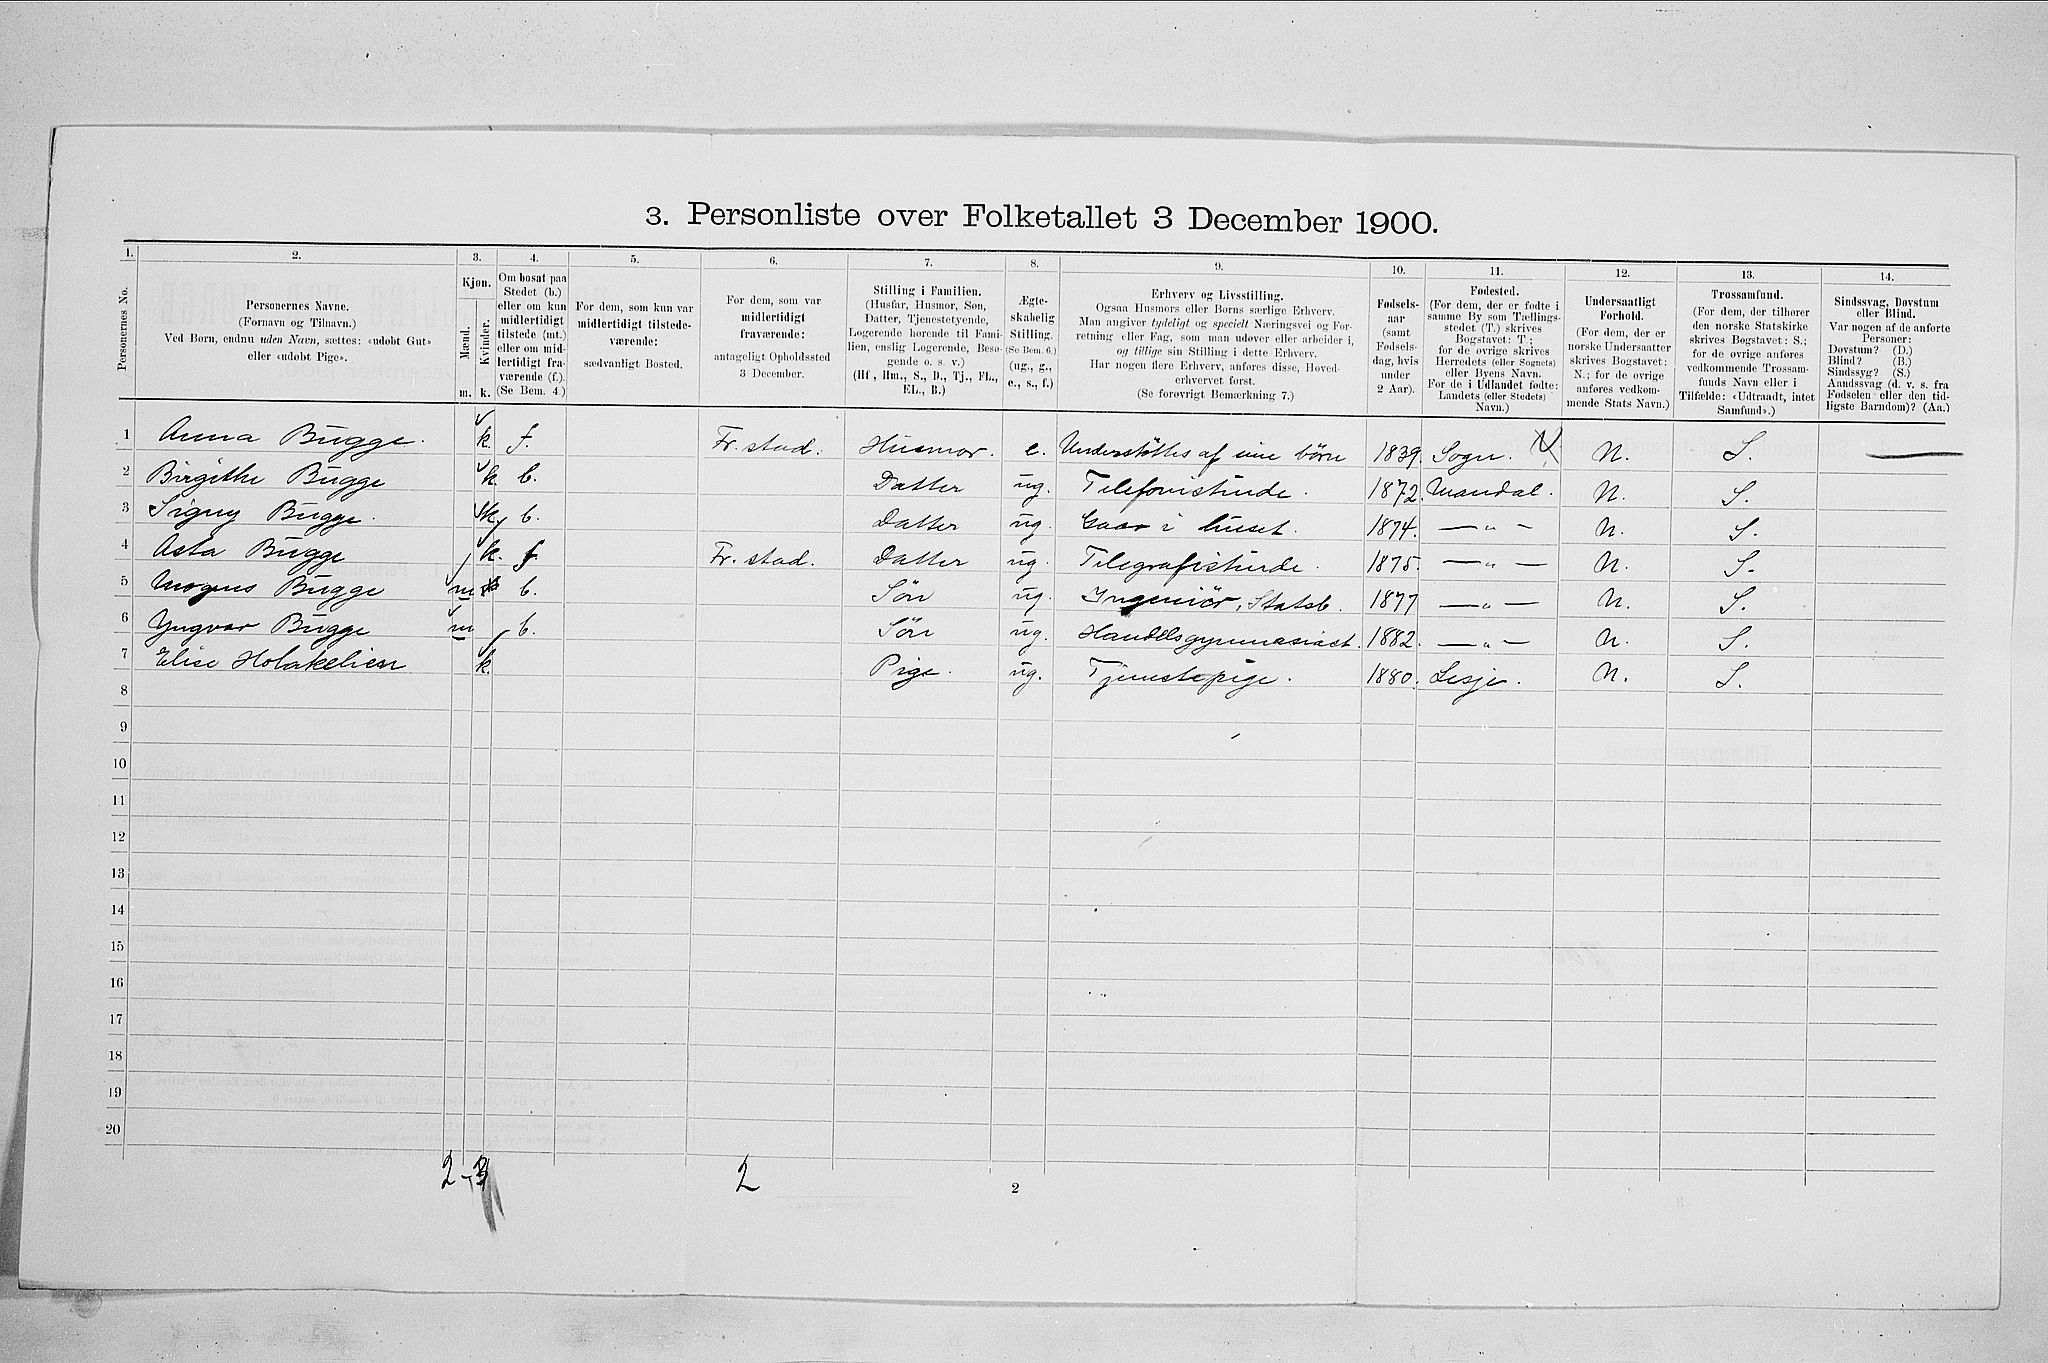 3. Personliste over Folketallet 3 December 1900.
1. 2. 3. 4. 5. 6. 7. 8. 9. 10. 11. 12. 13. 14.
Personernes No.
Personernes Navne.
(Fornavn og Tilnavn.)
Ved Børn, endnu uden Navn, sættes: «udøbt Gut»
eller «udøbt Pige».
Kjøn.
Mænd. Kvinder.
m. k.
Om bosat paa
Stedet (b.)
eller om kun
midlertidigt
tilstede (mt.)
eller om mid-
lertidigt fra-
værende (f.).
(Se Bem. 4.)
For dem, som kun var
midlertidigt tilstede-
værende:
sædvanligt Bosted.
For dem, som var
midlertidigt
fraværende:
antageligt Opholdssted
3 December.
Stilling i Familien.
(Husfar, Husmor, Søn,
Datter, Tjenestetyende,
Logerende hørende til Fami-
lien, enslig Logerende, Besø-
gende o. s. v.)
(Hf, Hm., S., D., Tj., FL.,
EL., B.)
Ægte-
skabelig
Stilling.
(Se Bem. 6.)
(ug., g.,
e., s., f.)
Erhverv og Livsstilling.
Ogsaa Husmors eller Børns særlige Erhverv.
Man angiver tydeligt og specielt Næringsvei og For-
retning eller Fag, som man udøver eller arbeider i,
og tillige sin Stilling i dette Erhverv.
Har nogen flere Erhverv, anføres disse, Hoved-
erhvervet først.
(Se forøvrigt Bemærkning 7.)
Fødsels-
aar
(samt
Fødsels-
dag, hvis
under
2 Aar).
Fødested.
(For dem, der er fødte i
samme By som Tællings-
stedet (T.) skrives
Bogstavet: T;
for de øvrige skrives
Herredets (eller Sognets)
eller Byens Navn.
For de i Udlandet fødte:
Landets (eller Stedets)
Navn.)
Undersaatligt
Forhold.
(For dem, der er
norske Undersaatter
skrives Bogstavet:
N.; for de øvrige
anføres vedkom-
mende Stats Navn.)
Trossamfund.
(For dem, der tilhører
den norske Statskirke
skrives Bogstavet: S.;
for de øvrige anføres
vedkommende Trossam-
funds Navn eller i
Tilfælde: «Udtraadt, intet
Samfund».)
Sindssvag, Døvstum
eller Blind.
Var nogen af de anførte
Personer:
Døvstum? (D.)
Blind? (B.)
Sindssyg? (S.)
Aandssvag (d. v. s. fra
Fødselen eller den tid-
ligste Barndom)? (Aa.)
1 Anna Bugge. k. f. Fr.stad. Husmor. e. Understöttes af sine börn 1839. Sogn. N. S.
2 Birgithe Bugge k b. Datter ug. Telefonistinde. 1872. Mandal. N. S.
3 Signy Bugge. k b. Datter ug. Gaar i huset. 1874. — „ — N. S.
4 Asta Bugge k. f. Fr.stad. Datter ug. Telegrafistinde. 1875. — „ — N. S.
5 Mogens Bugge m b. Sön ug. Ingeniör, Statsb. 1877 — „ — N. S.
6 Yngvar Bugge m b. Sön ug. Handelsgymnasiast. 1882. — „ — N. S.
7 Elise k. Pige. ug. Tjenestepige. 1880. Lesje. N. S.
8
9
10
11
12
13
14
15
16
17
18
19
20
2-3 2
2